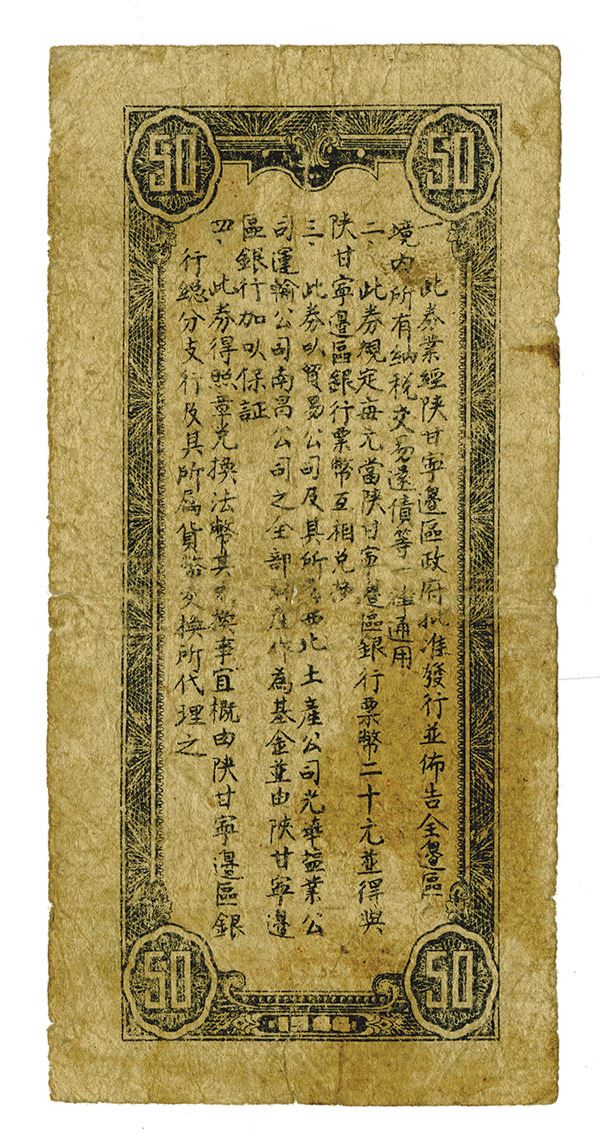 50
50
一、此券業經陝甘寧邊區政府批准發行並佈告全邊區
境内所有納稅交易還債等一律通用
二、此券規定每元當陝甘寧邊區銀行票幣二十元並得與
陝甘寧邊區銀行票幣互相兑換
三、此券以貿易公司及其所屬西北土產公司光華盐業公
司運輸公司南昌公司之全部財產作為基金並由陝甘寧邊
區銀行加以保証
四、此券得照章兑換法幣其兑換事宜概由陝甘寧邊區銀
行總分支行及其所属貨幣交換所代理之
50
50
1944